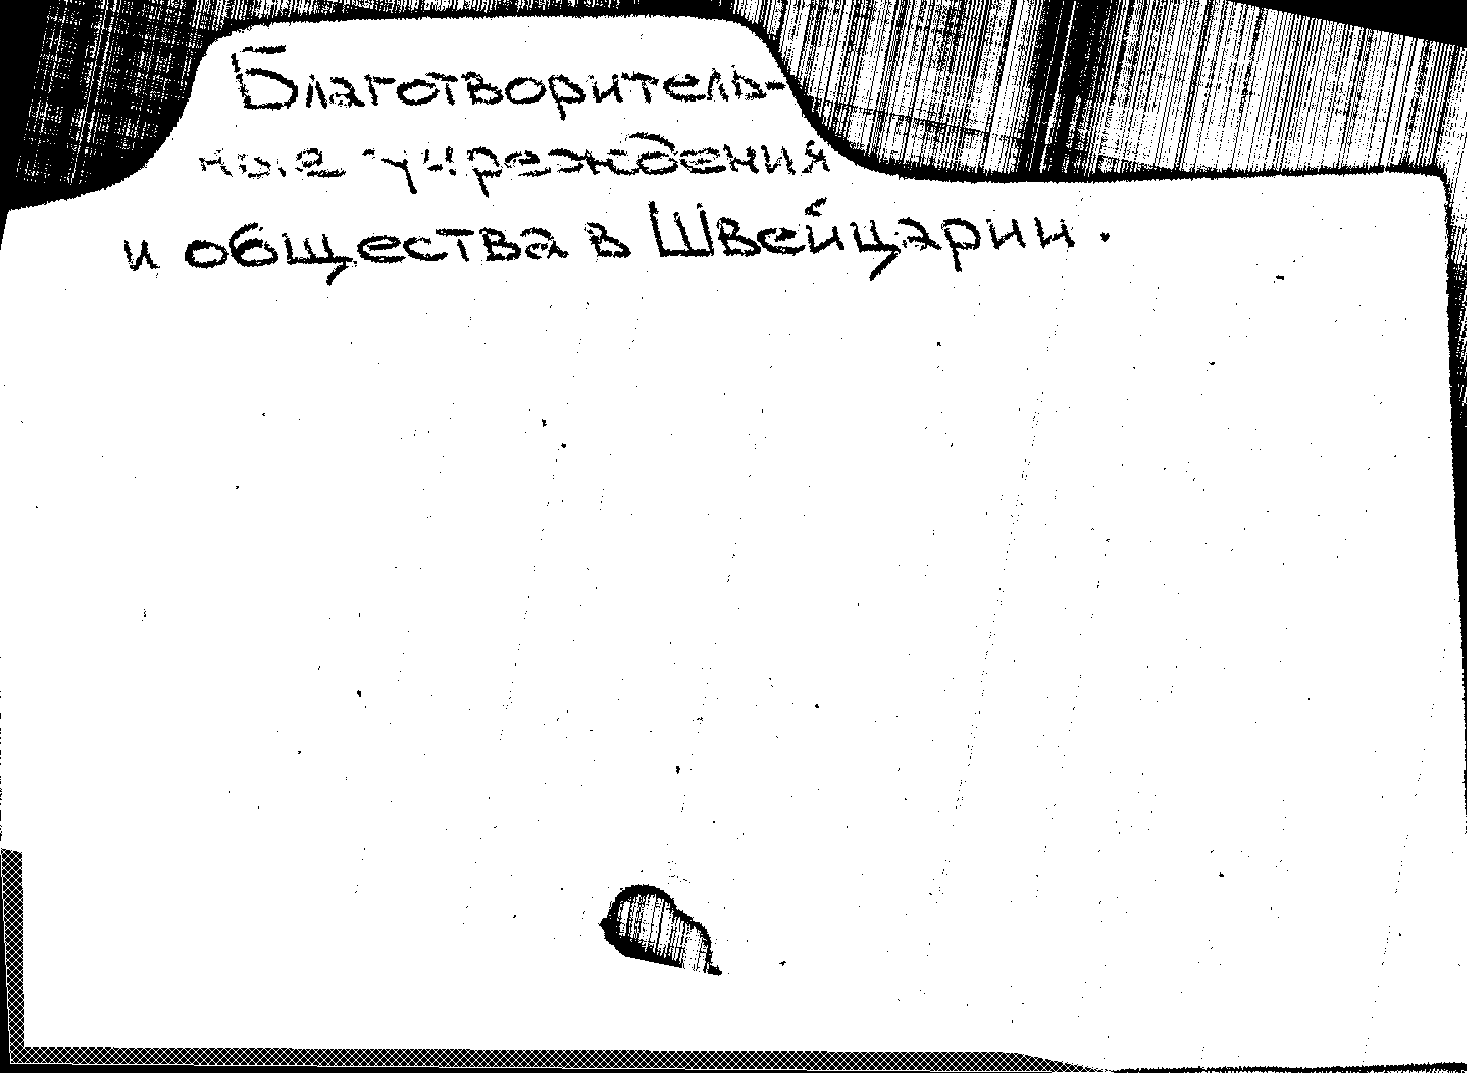 Благотворитель-
ные учреждения
и общества в Швейцарии.